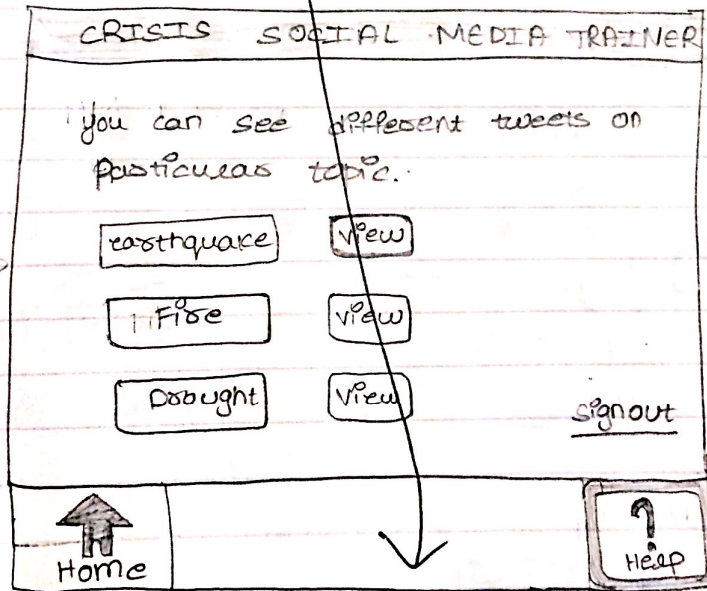 CRISIS SOCIAL MEDIA TRAINER
you can see different tweets on
particular topic.
earthquake view
Fire view
Drought View
signout
Home
?
Help